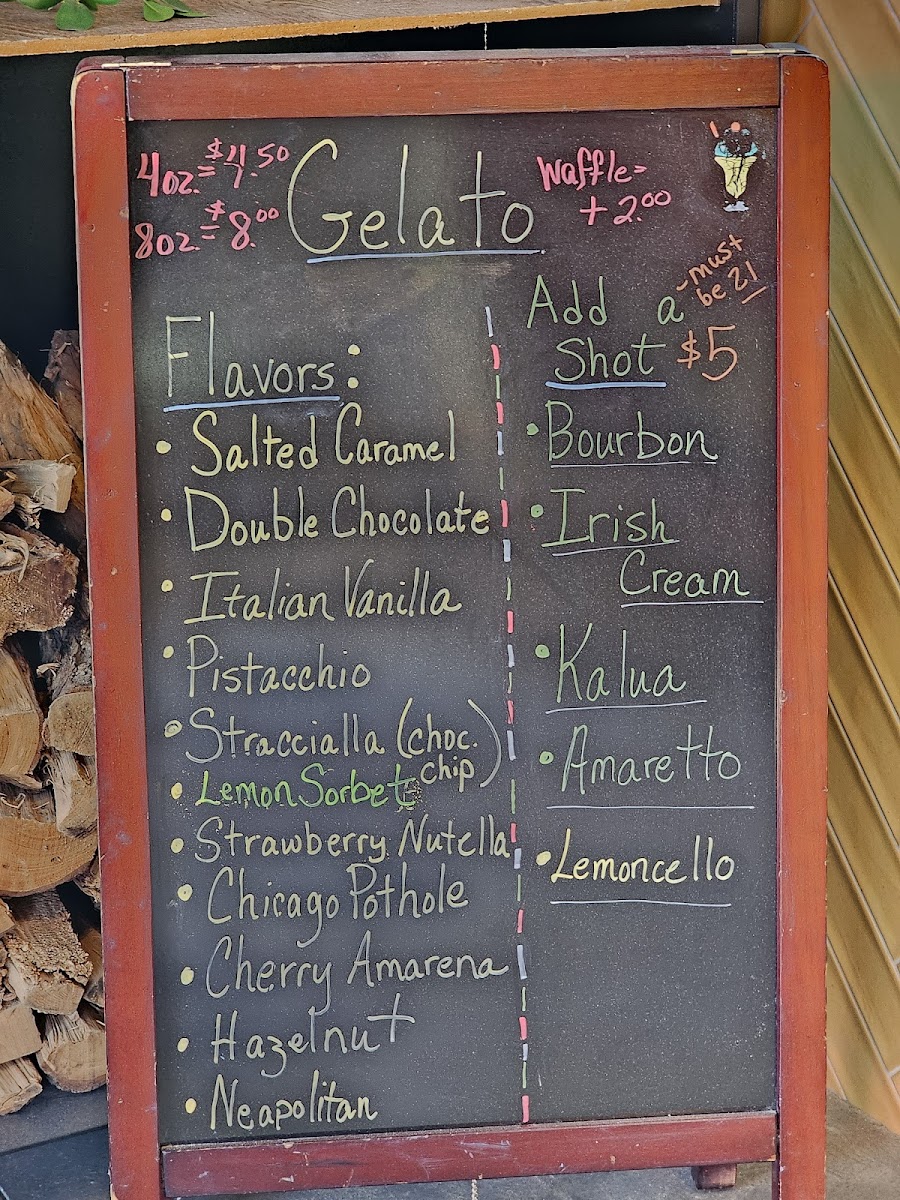 4oz.=$4.50
8oz.=$8.00
Gelato
Waffle-
+2.00
Flavors:
• Salted Caramel
• Double Chocolate
• Italian Vanilla
• Pistacchio
• Straccialla (choc.
chip)
• Lemon Sorbet
• Strawberry Nutella
• Chicago Pothole
• Cherry Amarena
• Hazelnut
• Neapolitan
Add a
Shot $5
-must
be 21
• Bourbon
• Irish
Cream
• Kalua
• Amaretto
• Lemoncello